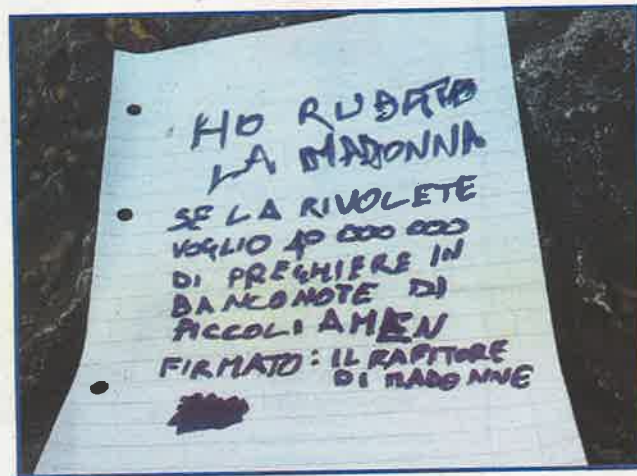 HO RUBATO
LA MADONNA
SE LA RIVOLETE
VOGLIO 40 000 000
DI PREGHIERE IN
BANCONOTE DI
PICCOLI AMEN
FIRMATO: IL RAPITORE
DI MADONNE